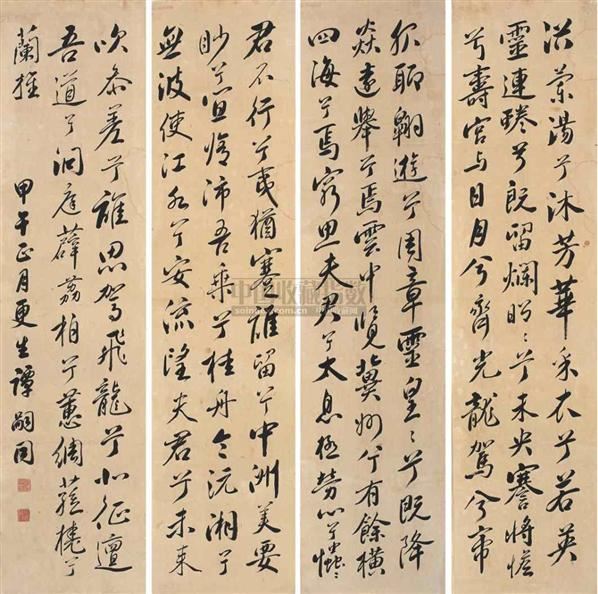 浴蘭湯兮沐芳華采衣兮若英
靈連蜷兮既留爛昭〻兮未央謇將憺
兮壽宮与日月兮齊光龍駕兮帝
服聊翱遊兮周章靈皇〻兮既降
猋遠舉兮焉雲中覽冀州兮有餘橫
四海兮焉窮思夫君兮太息極勞心兮忡〻
君不行兮夷猶蹇誰留兮中洲美要
眇兮宜脩沛吾乘兮桂舟令沅湘兮
無波使江水兮安流望夫君兮未來
吹參差兮誰思駕飛龍兮北征邅
吾道兮洞庭薜荔柏兮蕙綢蓀橈兮
蘭旌
甲午正月更生譚嗣同
中国收藏指数